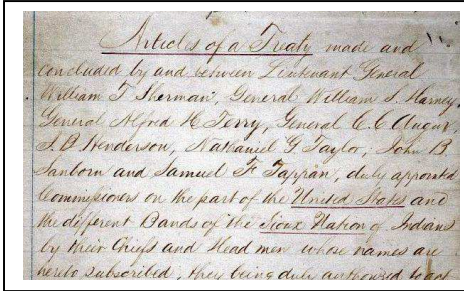 Articles of a Treaty made and
concluded by and between Lieutenant General
William T Sherman, General William S. Harney,
General Alfred H Terry, General C C Augur,
J. B Henderson, Nathaniel G Taylor, John B
Sanborn and Samuel F Tappan, duly appointed
Commissioners on the part of the United States and
the different Bands of the Sioux Nation of Indians
by their Chiefs and Head men whose names are
hereto subscribed, they being duly authorized to act